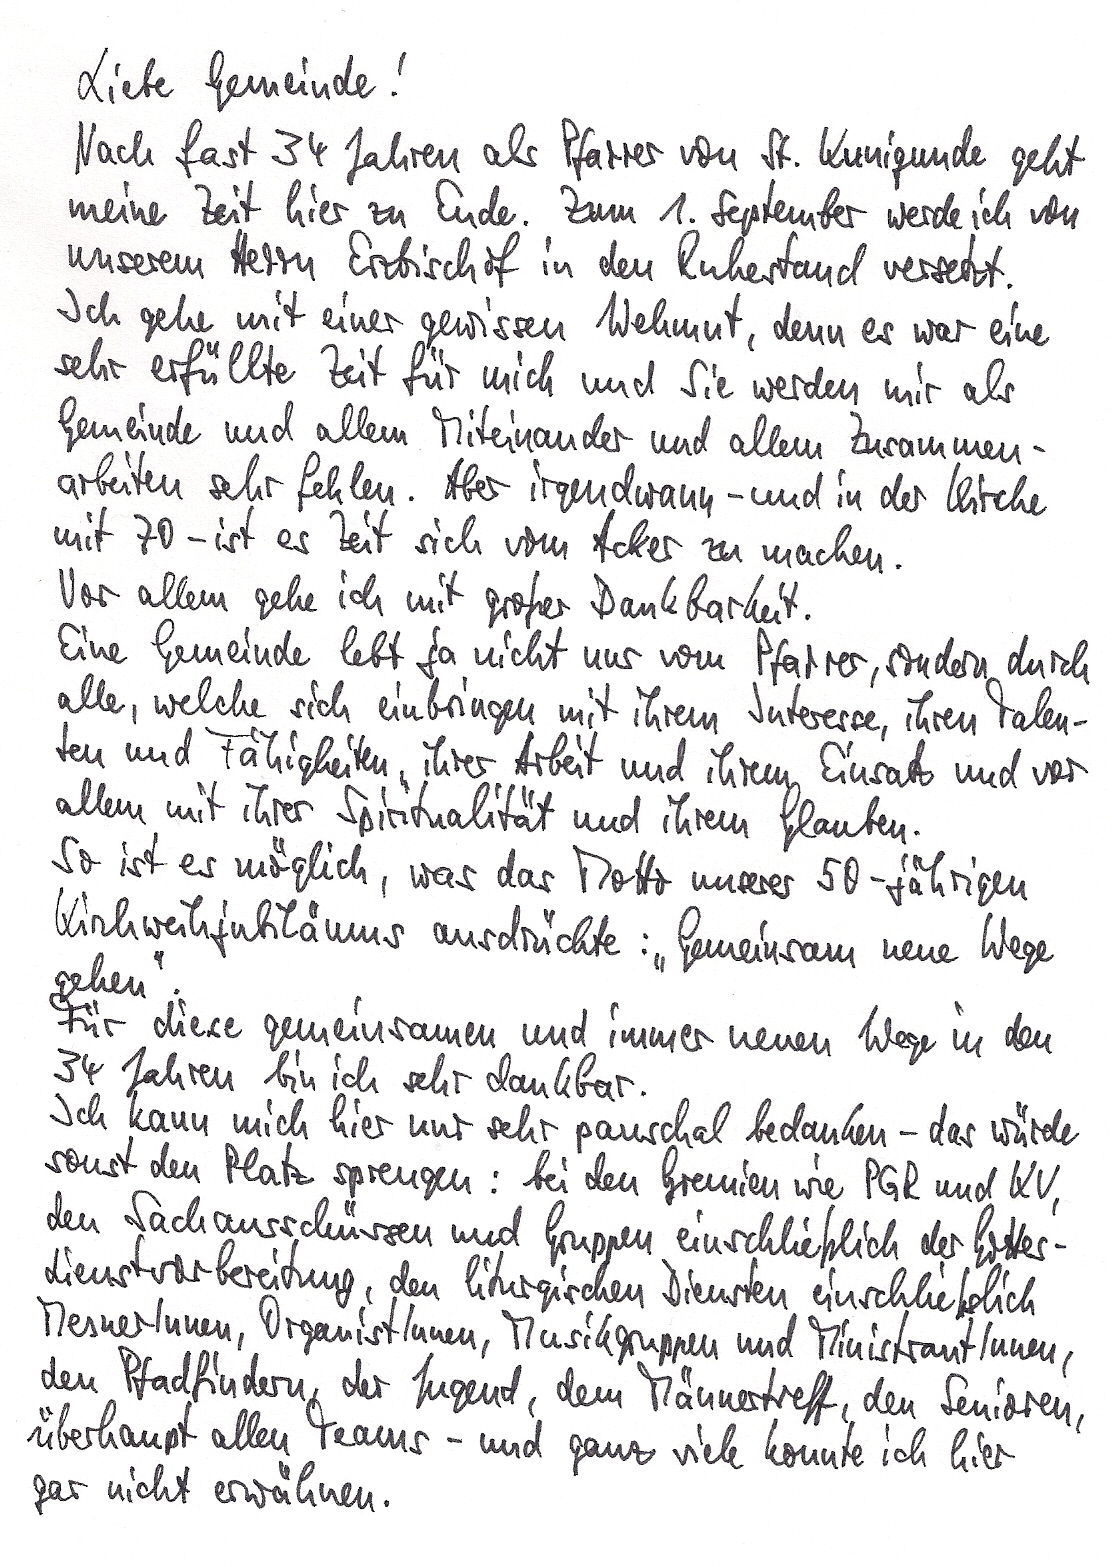 Liebe Gemeinde!
Nach fast 34 Jahren als Pfarrer von St. Kunigunde geht
meine Zeit hier zu Ende. Zum 1. September werde ich von
unserem Herrn Erzbischof in den Ruhestand versetzt.
Ich gehe mit einer gewissen Wehmut, denn es war eine
sehr erfüllte Zeit für mich und Sie werden mir als
Gemeinde und allem Miteinander und allem Zusammen-
arbeiten sehr fehlen. Aber irgendwann - und in der Kirche
mit 70 - ist es Zeit sich vom Acker zu machen.
Vor allem gehe ich mit großer Dankbarkeit.
Eine Gemeinde lebt ja nicht nur vom Pfarrer, sondern durch
alle, welche sich einbringen mit ihrem Interesse, ihren Talen-
ten und Fähigkeiten, ihrer Arbeit und ihrem Einsatz und vor
allem mit ihrer Spiritualität und ihrem Glauben.
So ist es möglich, was das Motto unseres 50-jährigen
Kirchweihjubiläums ausdrückte: „Gemeinsam neue Wege
gehen".
Für diese gemeinsamen und immer neuen Wege in den
34 Jahren bin ich sehr dankbar.
Ich kann mich hier nur sehr pauschal bedanken - das würde
sonst den Platz sprengen: bei den Gremien wie PGR und KV,
den Sachausschüssen und Gruppen einschließlich der Gottes-
dienstvorbereitung, den liturgischen Diensten einschließlich
MesnerInnen, OrganistInnen, Musikgruppen und MinistrantInnen,
den Pfadfindern, der Jugend, dem Männertreff, den Senioren,
überhaupt allen Teams - und ganz viele konnte ich hier
gar nicht erwähnen.